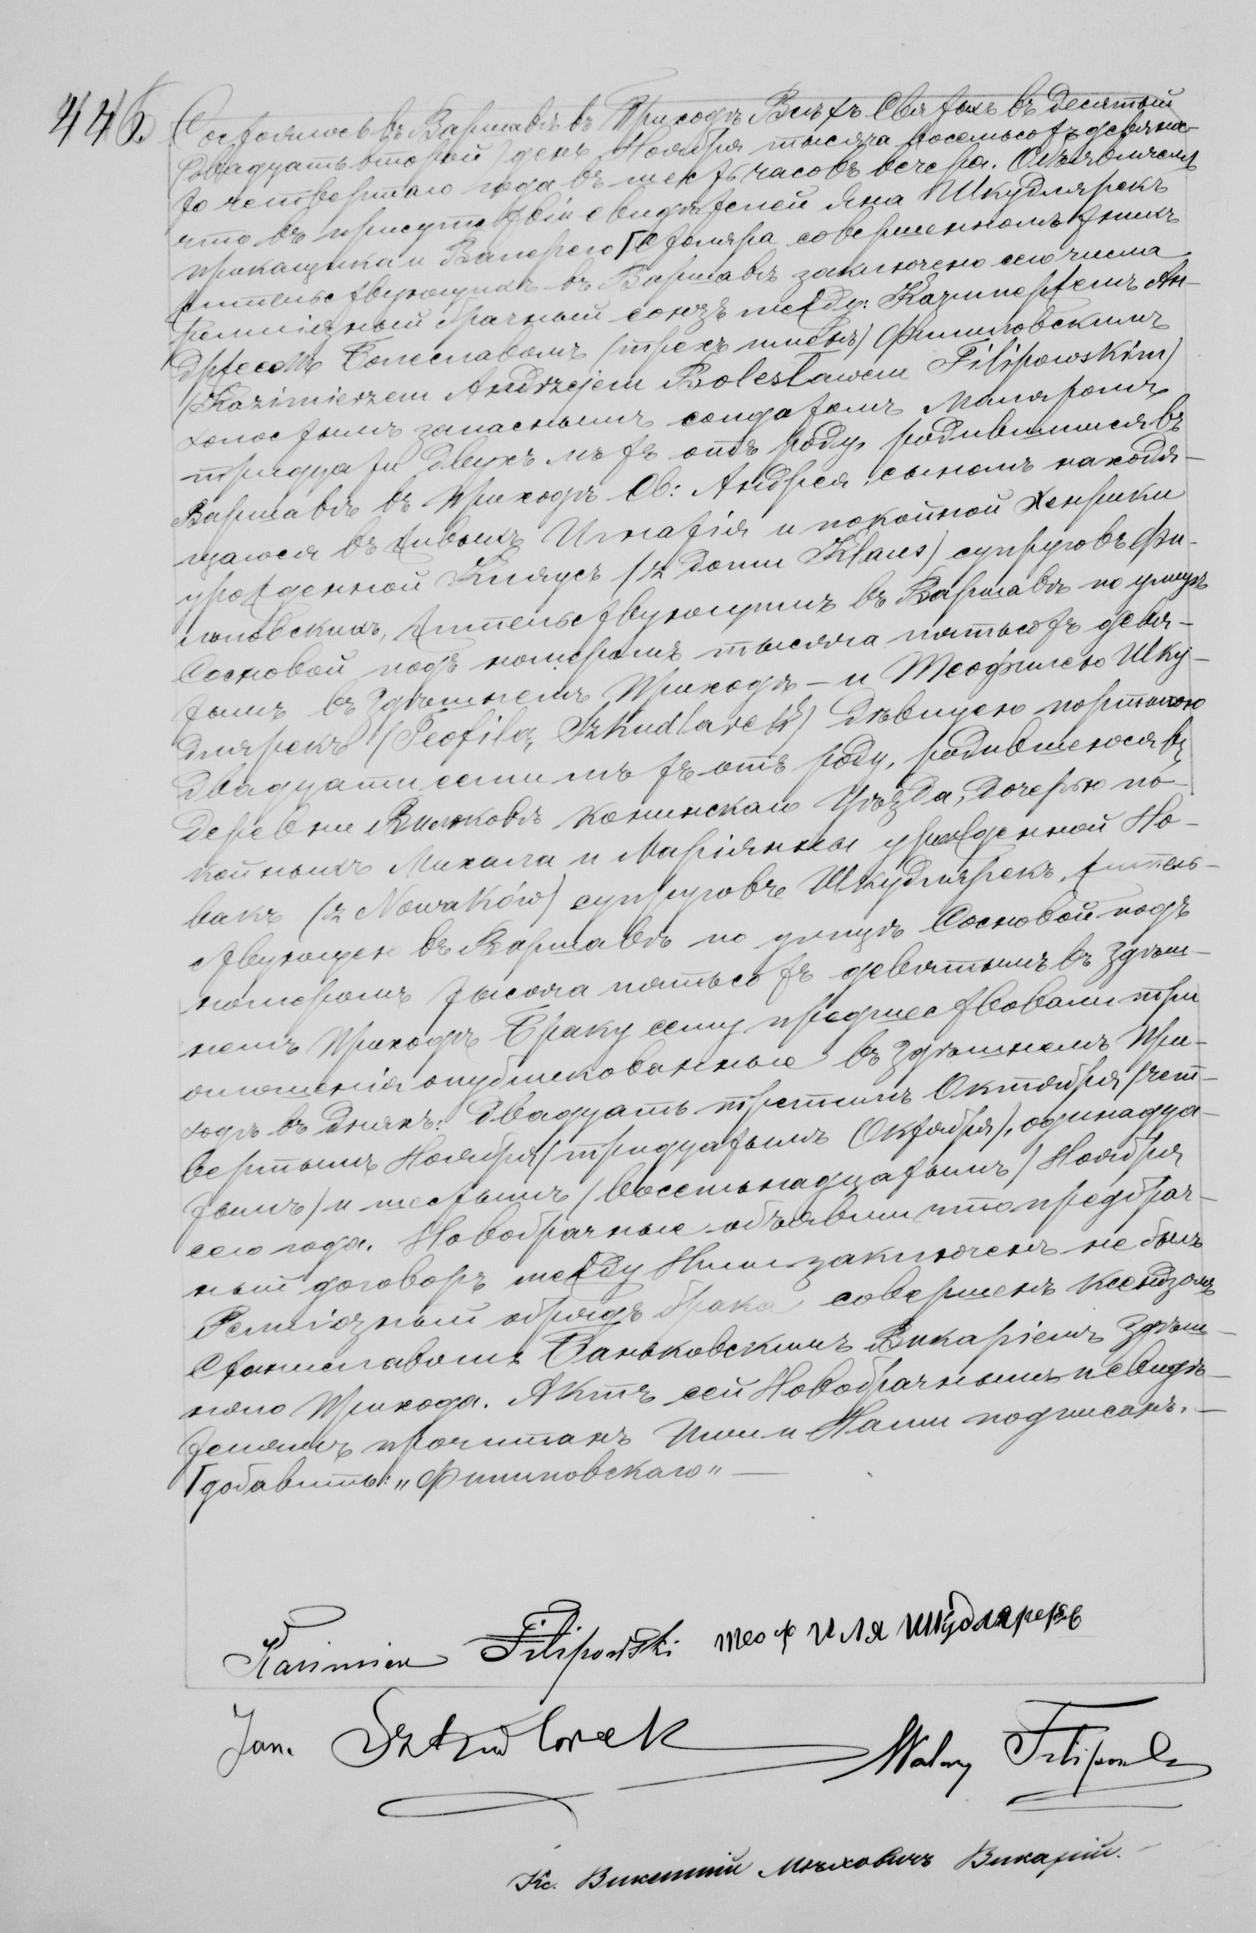 446.
Состоялось въ Варшавѣ въ Приходѣ Всѣхъ Святыхъ въ десятый
(двадцать второй) день Ноября тысяча восемьсотъ девяно-
сто четвертаго года въ шесть часовъ вечера. Объявляемъ
что въ присутствіи свидѣтелей Яна Шкудлярекъ
прикащика и Валерего Г столяра совершеннолѣтнихъ
жительствующихъ въ Варшавѣ заключено сего числа
религіозный брачный союзъ между: Казимержемъ Ан-
држеемъ Болеславомъ (трехъ именъ) Филиповскимъ
(Kazimierzem Andrzejem Bolesławem Filipowskim)
холостымъ запаснымъ солдатомъ маляромъ
тридцати двухъ лѣтъ отъ роду, родившимся въ
Варшавѣ въ приходѣ Св: Андрея, сыномъ находя-
щагося въ живыхъ Игнатія и покойной Хенрики
урожденной Кляусъ (z domu Klaus) супруговъ Фи-
липовскихъ, жительствующимъ въ Варшавѣ по улицѣ
Сосновой подъ номеромъ тысяча пятьсотъ девя-
тымъ въ здѣшнемъ Приходѣ – и Теофилею Шку-
длярекъ (Teofilą Szkudlarek) дѣвицею портнихою
двадцати семи лѣтъ отъ роду, родившеюся въ
деревни Конинскаго Уѣзда, дочерью по-
койныхъ Михала и Маріянны урожденной Но-
вакъ (z Nowaków) супруговъ Шкудлярекъ, житель-
ствующею въ Варшавѣ по улицѣ Сосновой подъ
номеромъ тысяча пятьсотъ девятымъ въ здѣш-
немъ Приходѣ Браку сему предшествовали три
оглашенія опубликованные въ здѣшнемъ При-
ходѣ въ дняхъ: двадцать третьимъ Октября (чет-
вертымъ Ноября) тридцатымъ Октября), одинадца-
тымъ) и шестымъ (восемьнадцатымъ) Ноября
сего года. Новобрачные объявили что предбрач-
ный договоръ между Ними заключенъ не былъ
Религіозный обрядъ брака совершенъ Ксендзомъ
Станиславомъ Баньковскимъ Викаріемъ здѣш-
няго Прихода. Актъ сей Новобрачнымъ и свидѣ-
телямъ прочитанъ Ими и Нами подписанъ. –
Г добавить: „Филиповскаго" –
Kazimierz Filipowski теофиля шкудлярекъ
Jan. Szkudlarek Walery Filipowski
Кс. Викентій Мѣховичъ Викарій.